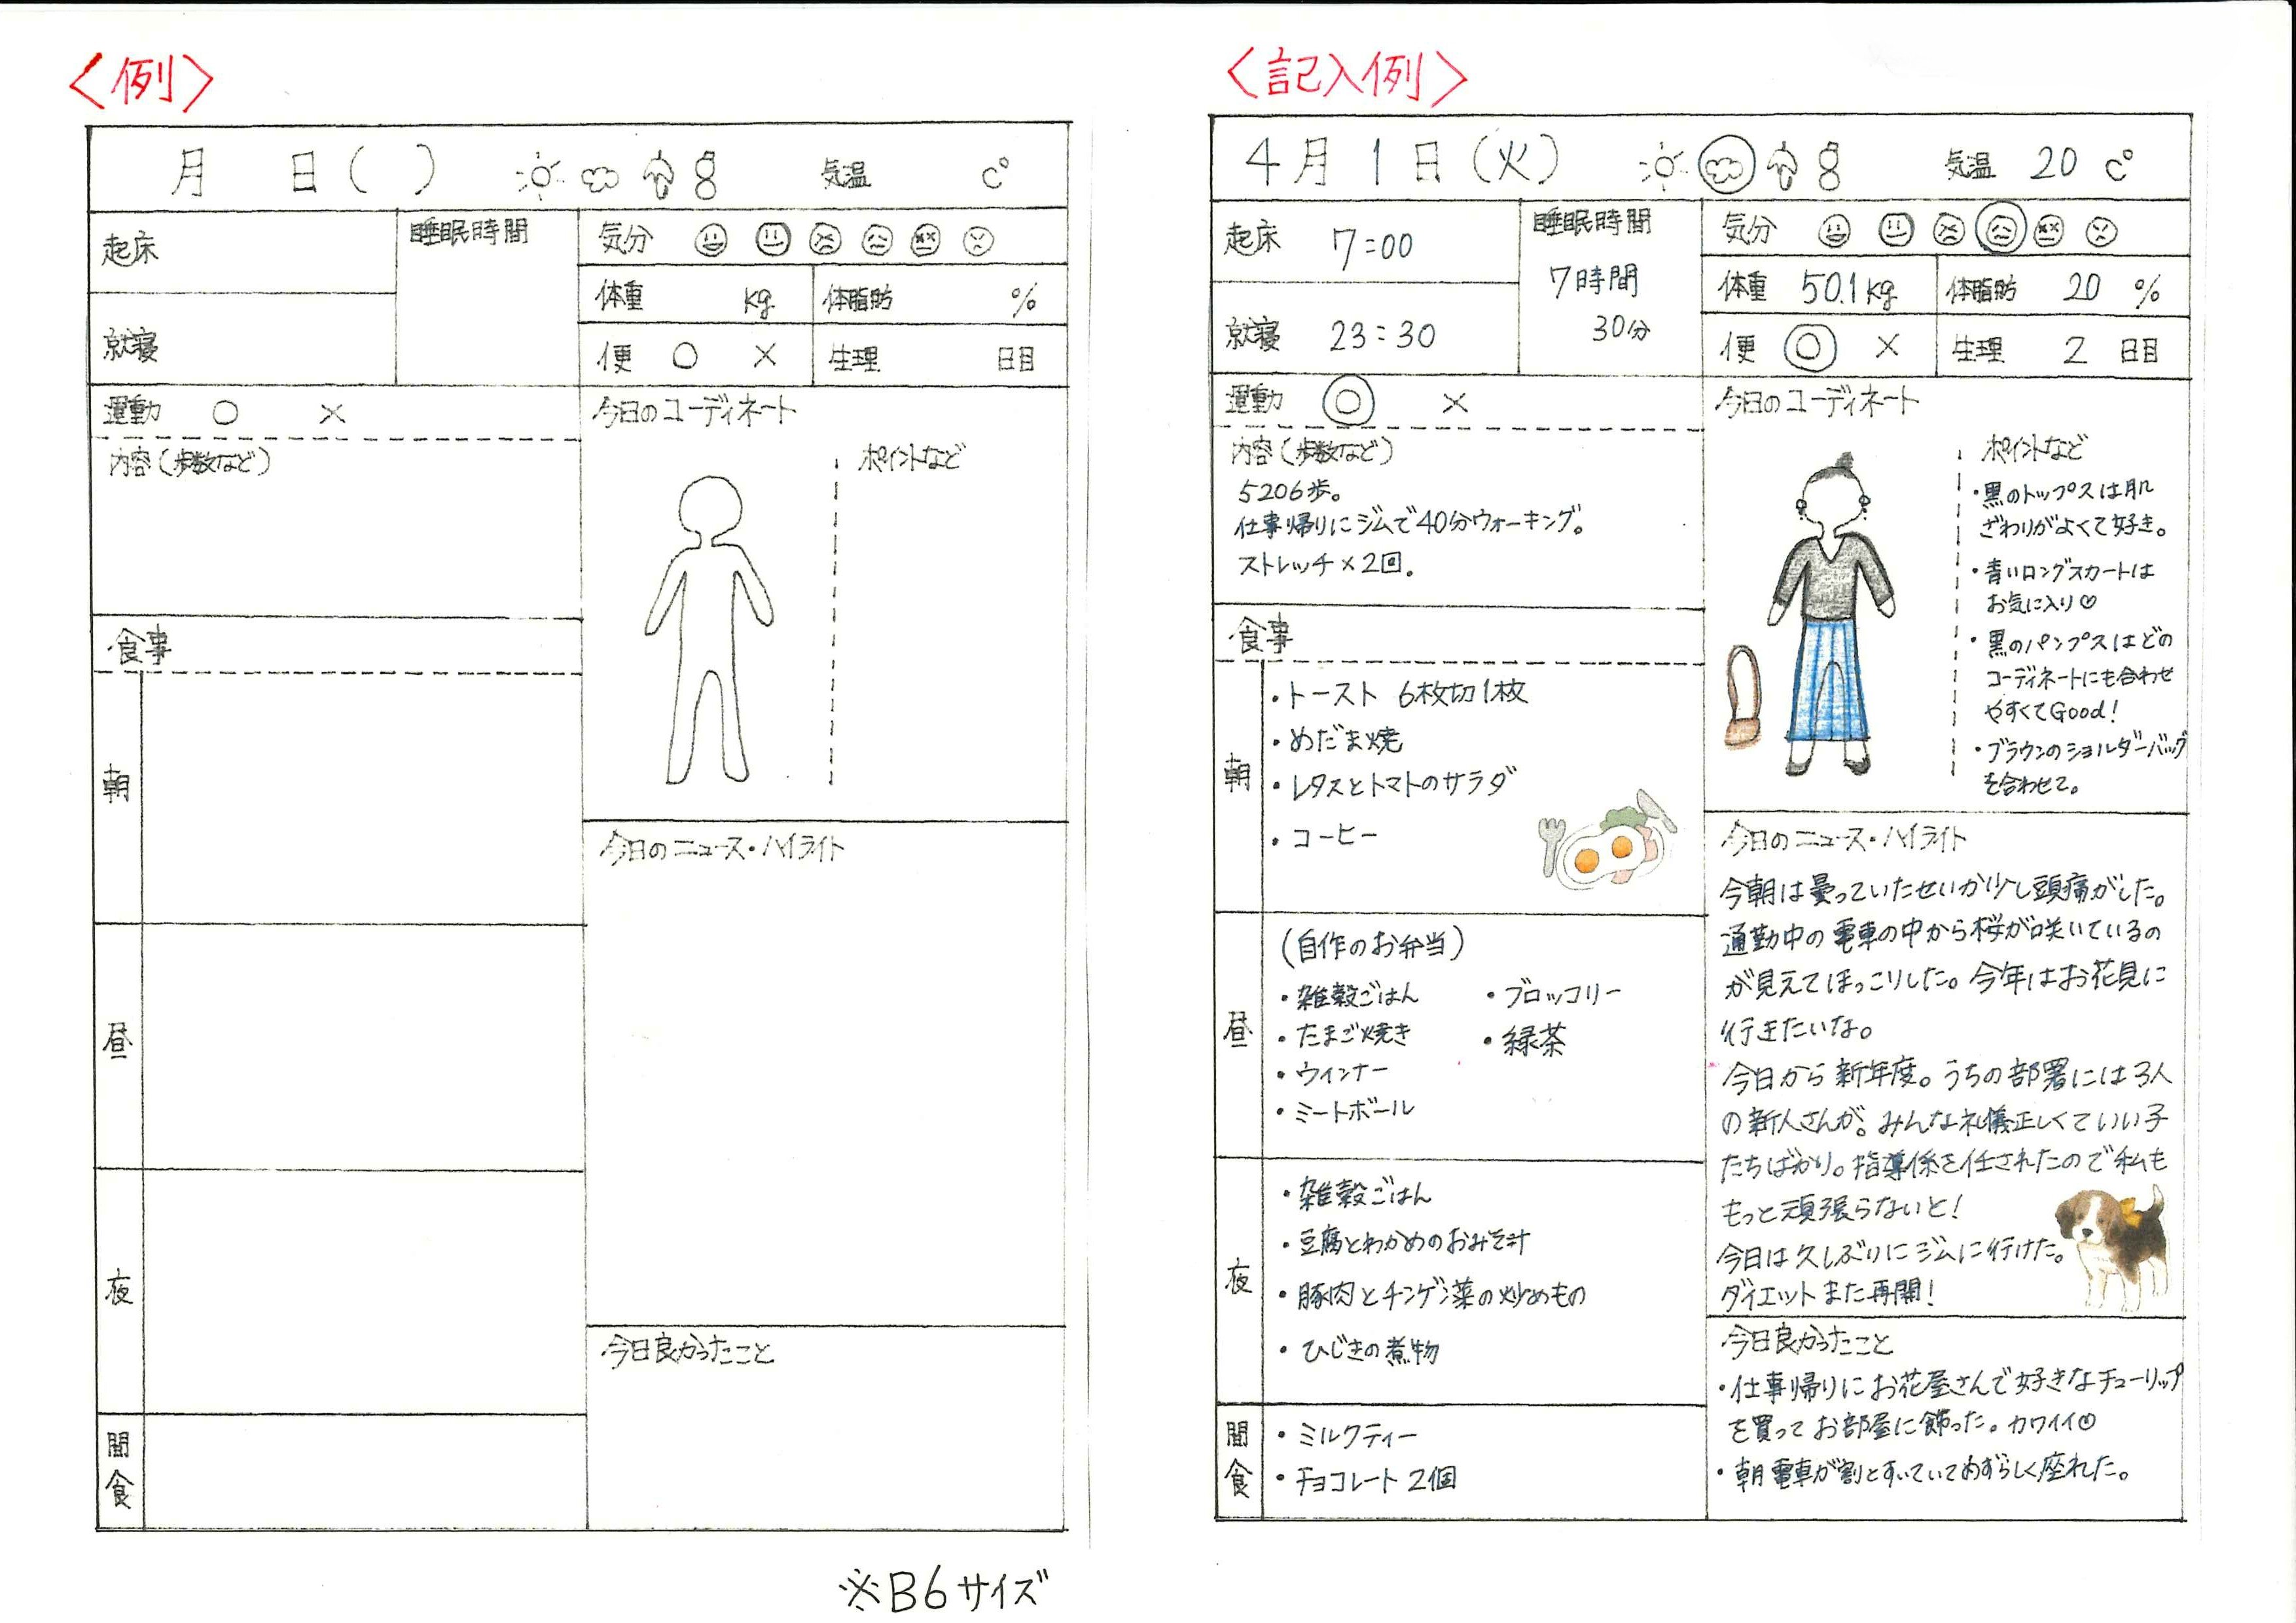 〈例〉
月 日( )
気温 C°
起床
睡眠時間
就寝
気分
体重 kg
体脂肪 %
便 ○ ×
生理 日目
運動 ○ ×
内容(歩数など)
食事
朝
昼
夜
間食
今日のコーディネート
ポイントなど
今日のニュース・ハイライト
今日良かったこと
※B6サイズ
〈記入例〉
4月1日(火)
気温 20 C°
起床 7:00
睡眠時間
7時間
30分
就寝 23:30
気分
体重 50.1kg
体脂肪 20 %
便 ○ ×
生理 2 日目
運動 ○ ×
内容(歩数など)
5206歩。
仕事帰りにジムで40分ウォーキング。
ストレッチ×2回。
食事
朝
・トースト 6枚切1枚
・めだま焼
・レタスとトマトのサラダ
・コーヒー
昼
(自作のお弁当)
・雑穀ごはん ・ブロッコリー
・たまご焼き ・緑茶
・ウィンナー
・ミートボール
夜
・雑穀ごはん
・豆腐とわかめのおみそ汁
・豚肉とチンゲン菜の炒めもの
・ひじきの煮物
間食
・ミルクティー
・チョコレート 2個
今日のコーディネート
ポイントなど
・黒のトップスは肌
ざわりがよくて好き。
・青いロングスカートは
お気に入り♡
・黒のパンプスはどの
コーディネートにも合わせ
やすくてGood!
・ブラウンのショルダーバッグ
を合わせて。
今日のニュース・ハイライト
今朝は曇っていたせいか少し頭痛がした。
通勤中の電車の中から桜が咲いているの
が見えてほっこりした。今年はお花見に
行きたいな。
今日から新年度。うちの部署には3人
の新人さんが。みんな礼儀正しくていい子
たちばかり。指導係を任されたので私も
もっと頑張らないと!
今日は久しぶりにジムに行けた。
ダイエットまた再開!
今日良かったこと
・仕事帰りにお花屋さんで好きなチューリップ
を買ってお部屋に飾った。カワイイ☺
・朝電車が割とすいていてめずらしく座れた。